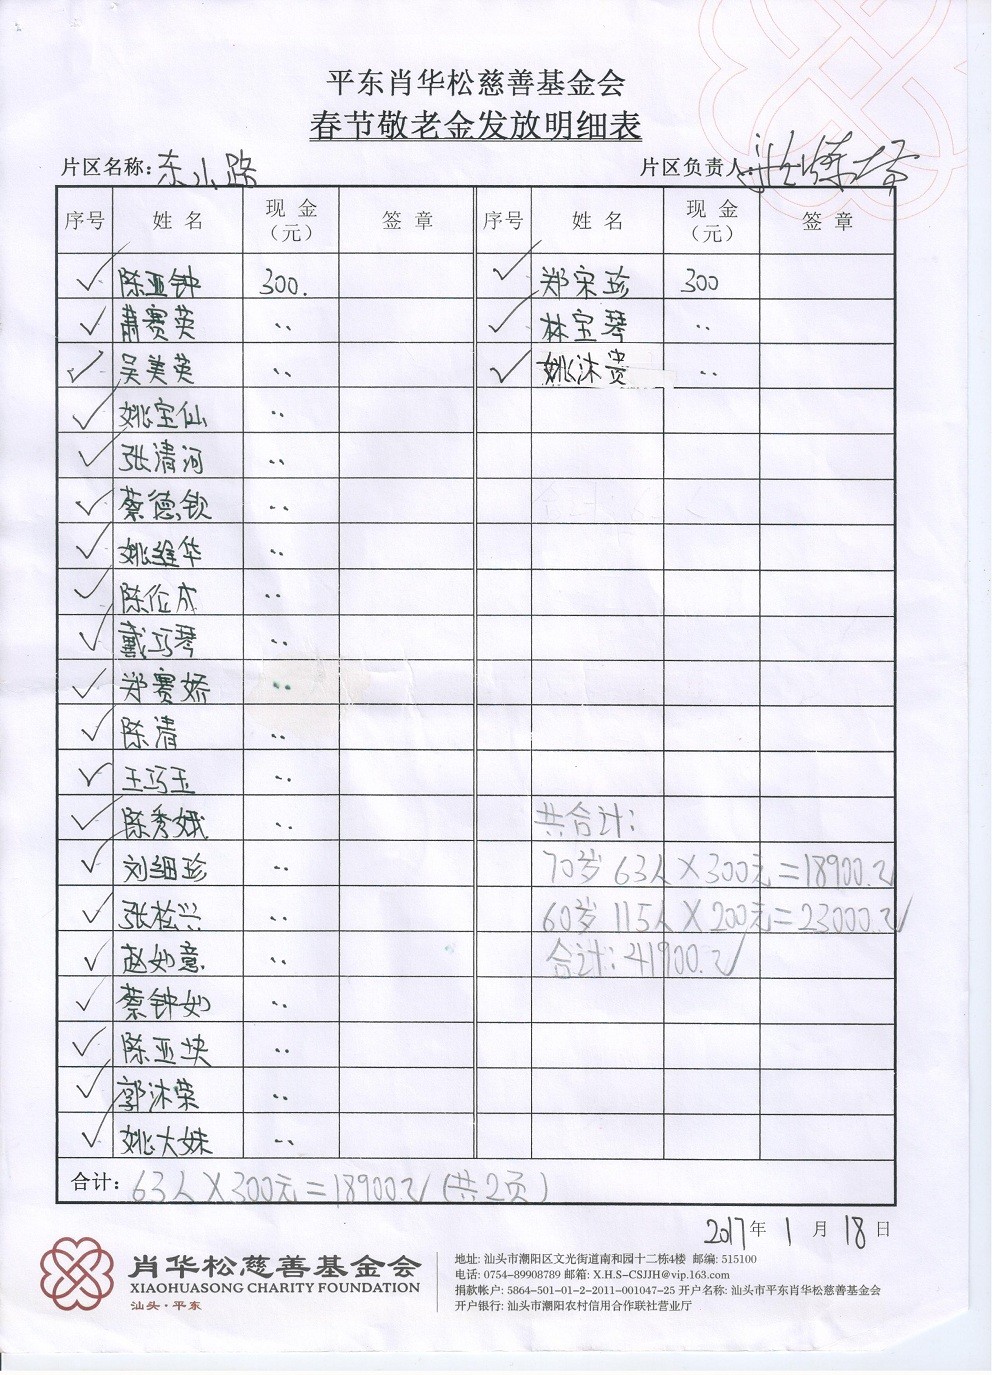 平东肖华松慈善基金会
春节敬老金发放明细表
片区名称:东小路 片区负责人:
序号 姓名 现金(元) 签章 序号 姓名 现金(元) 签章
✓ 陈亚钟 300. ✓ 郑宋珍 300
✓ 萧赛英 〃 ✓ 林宝琴 〃
✓ 吴美英 〃 ✓ 姚沐贵 〃
✓ 姚宝仙 〃
✓ 张清河 〃
✓ 蔡德钦 〃
✓ 姚继华 〃
✓ 陈位成 〃
✓ 戴巧琴 〃
✓ 郑赛娇 〃
✓ 陈清 〃
✓ 王巧玉 〃
✓ 陈秀娥 〃 共合计:
✓ 刘细珍 〃 70岁 63人×300元=18900.元
✓ 张松兴 〃 60岁 115人×200元=23000.元
✓ 赵如意 〃 合计:41900.元
✓ 蔡钟如 〃
✓ 陈亚块 〃
✓ 郭沐荣 〃
✓ 姚大妹 〃
合计: 63人×300元=18900元(共2页)
2017年1月18日
肖华松慈善基金会
XIAOHUASONG CHARITY FOUNDATION
汕头·平东
地址: 汕头市潮阳区文光街道南和园十二栋4楼 邮编: 515100
电话: 0754-89908789 邮箱: X.H.S-CSJJH@vip.163.com
捐款帐户: 5864-501-01-2-2011-001047-25 开户名称: 汕头市平东肖华松慈善基金会
开户银行: 汕头市潮阳农村信用合作联社营业厅